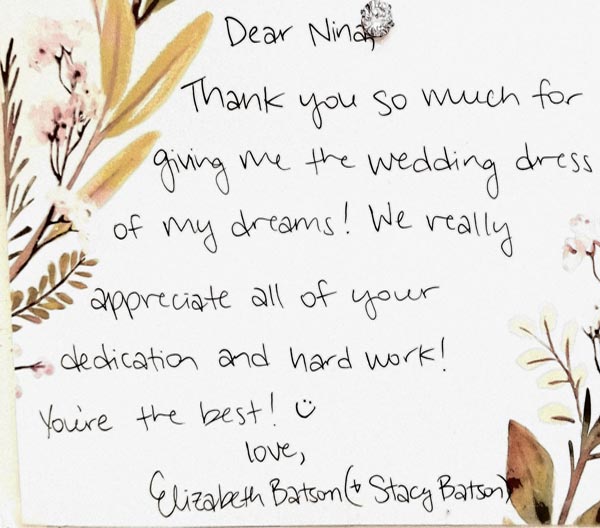 Dear Nina,
Thank you so much for
giving me the wedding dress
of my dreams! We really
appreciate all of your
dedication and hard work!
You're the best! ☺
love,
Elizabeth Batson (+ Stacy Batson)